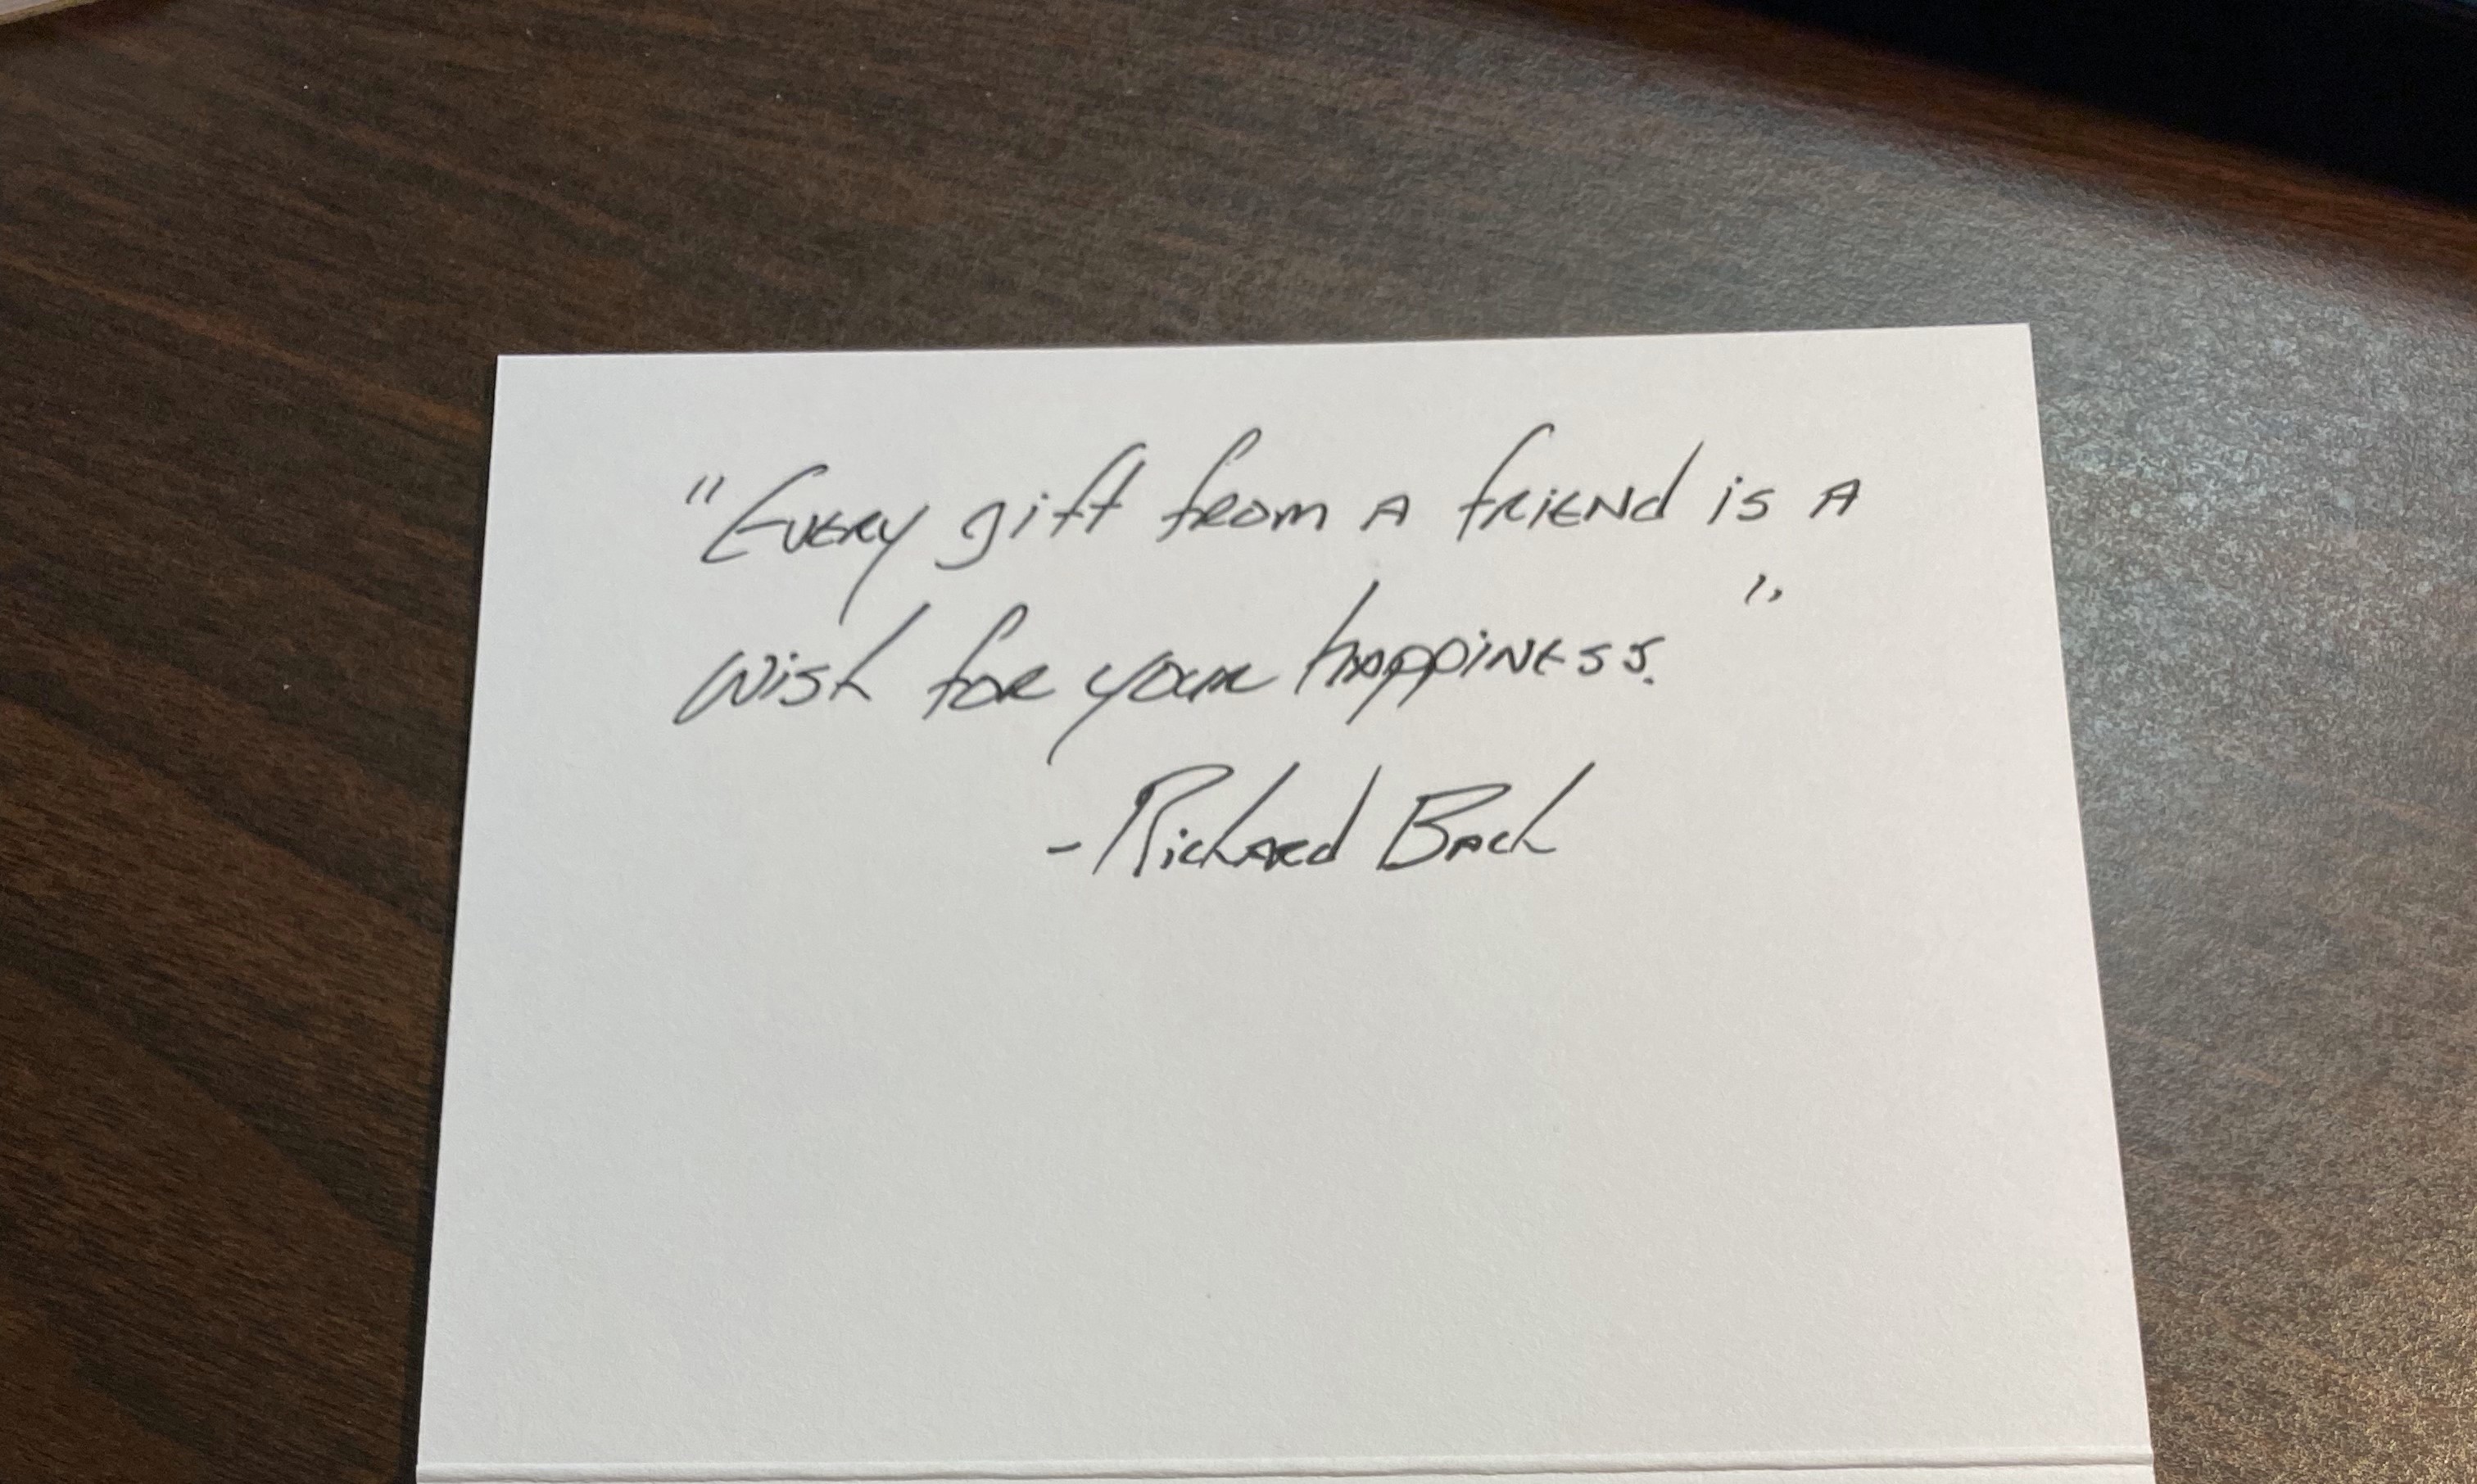 "Every gift from a friend is a
wish for your happiness."
- Richard Bach